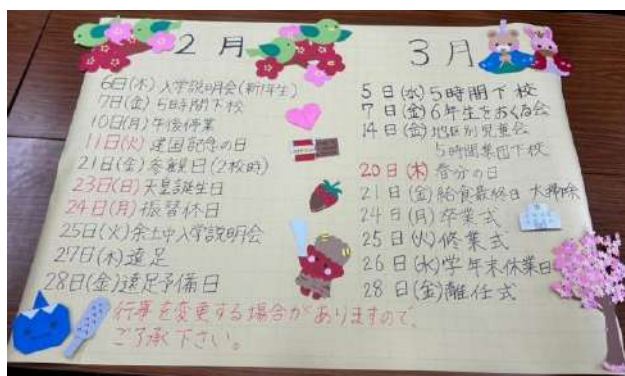 2月
6日(木)入学説明会(新1年生)
7日(金)5時間下校
10日(月)午後停業
11日(火)建国記念の日
21日(金)参観日(2校時)
23日(日)天皇誕生日
24日(月)振替休日
25日(火)余土中入学説明会
27日(木)遠足
28日(金)遠足予備日
行事を変更する場合がありますので、
ご了承下さい。
3月
5日(水)5時間下校
7日(金)6年生をおくる会
14日(金)地区別児童会
5時間集団下校
20日(木)春分の日
21日(金)給食最終日 大掃除
24日(月)卒業式
25日(火)修業式
26日(水)学年末休業日
28日(金)離任式